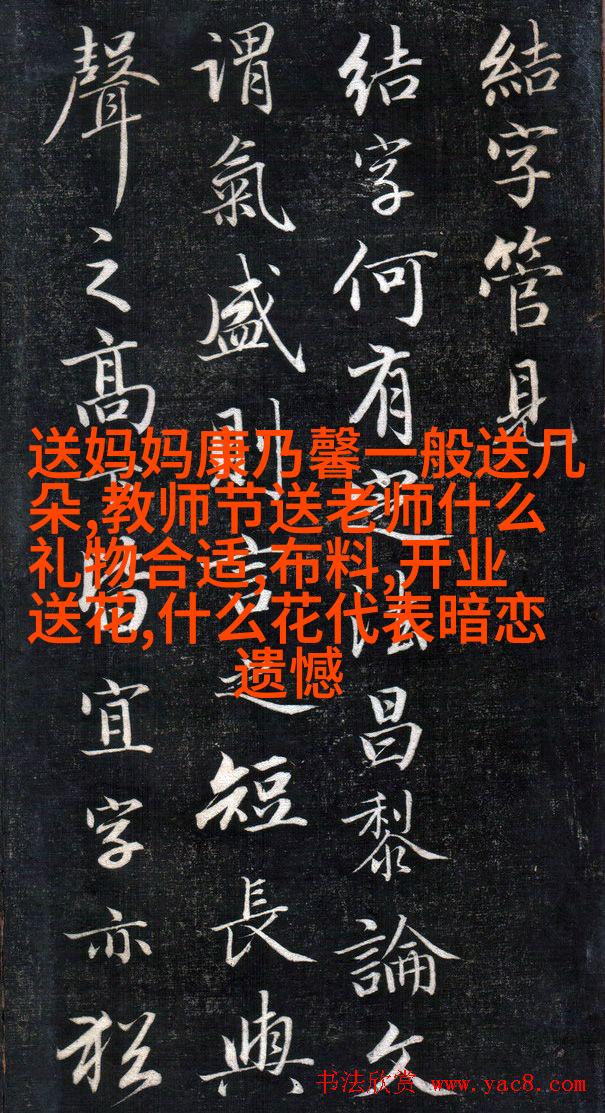 結字管見
结字何有定法昌黎論文
謂氣盛則言之短長與
聲之高下皆宜字亦猶
送妈妈康乃馨一般送几
朵,教师节送老师什么
礼物合适,布料,开业
送花,什么花代表暗恋
遗憾
书法欣赏 www.yac8.com